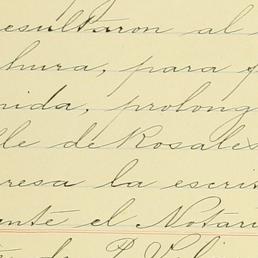 esultaron al
bura, para
nida, prolong
lle de Rosales
resa la escrit
ante el Notari
de P.